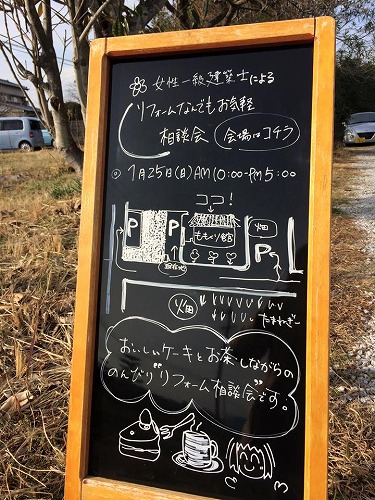 女性一級建築士による
リフォームなんでもお気軽
相談会
会場はコチラ
1月25日(日)AM10:00-PM5:00
ココ!
P
P
ももくり館
畑
P
畑
たまねぎー
おいしいケーキとお茶しながらの
のんびり"リフォーム相談会"です。